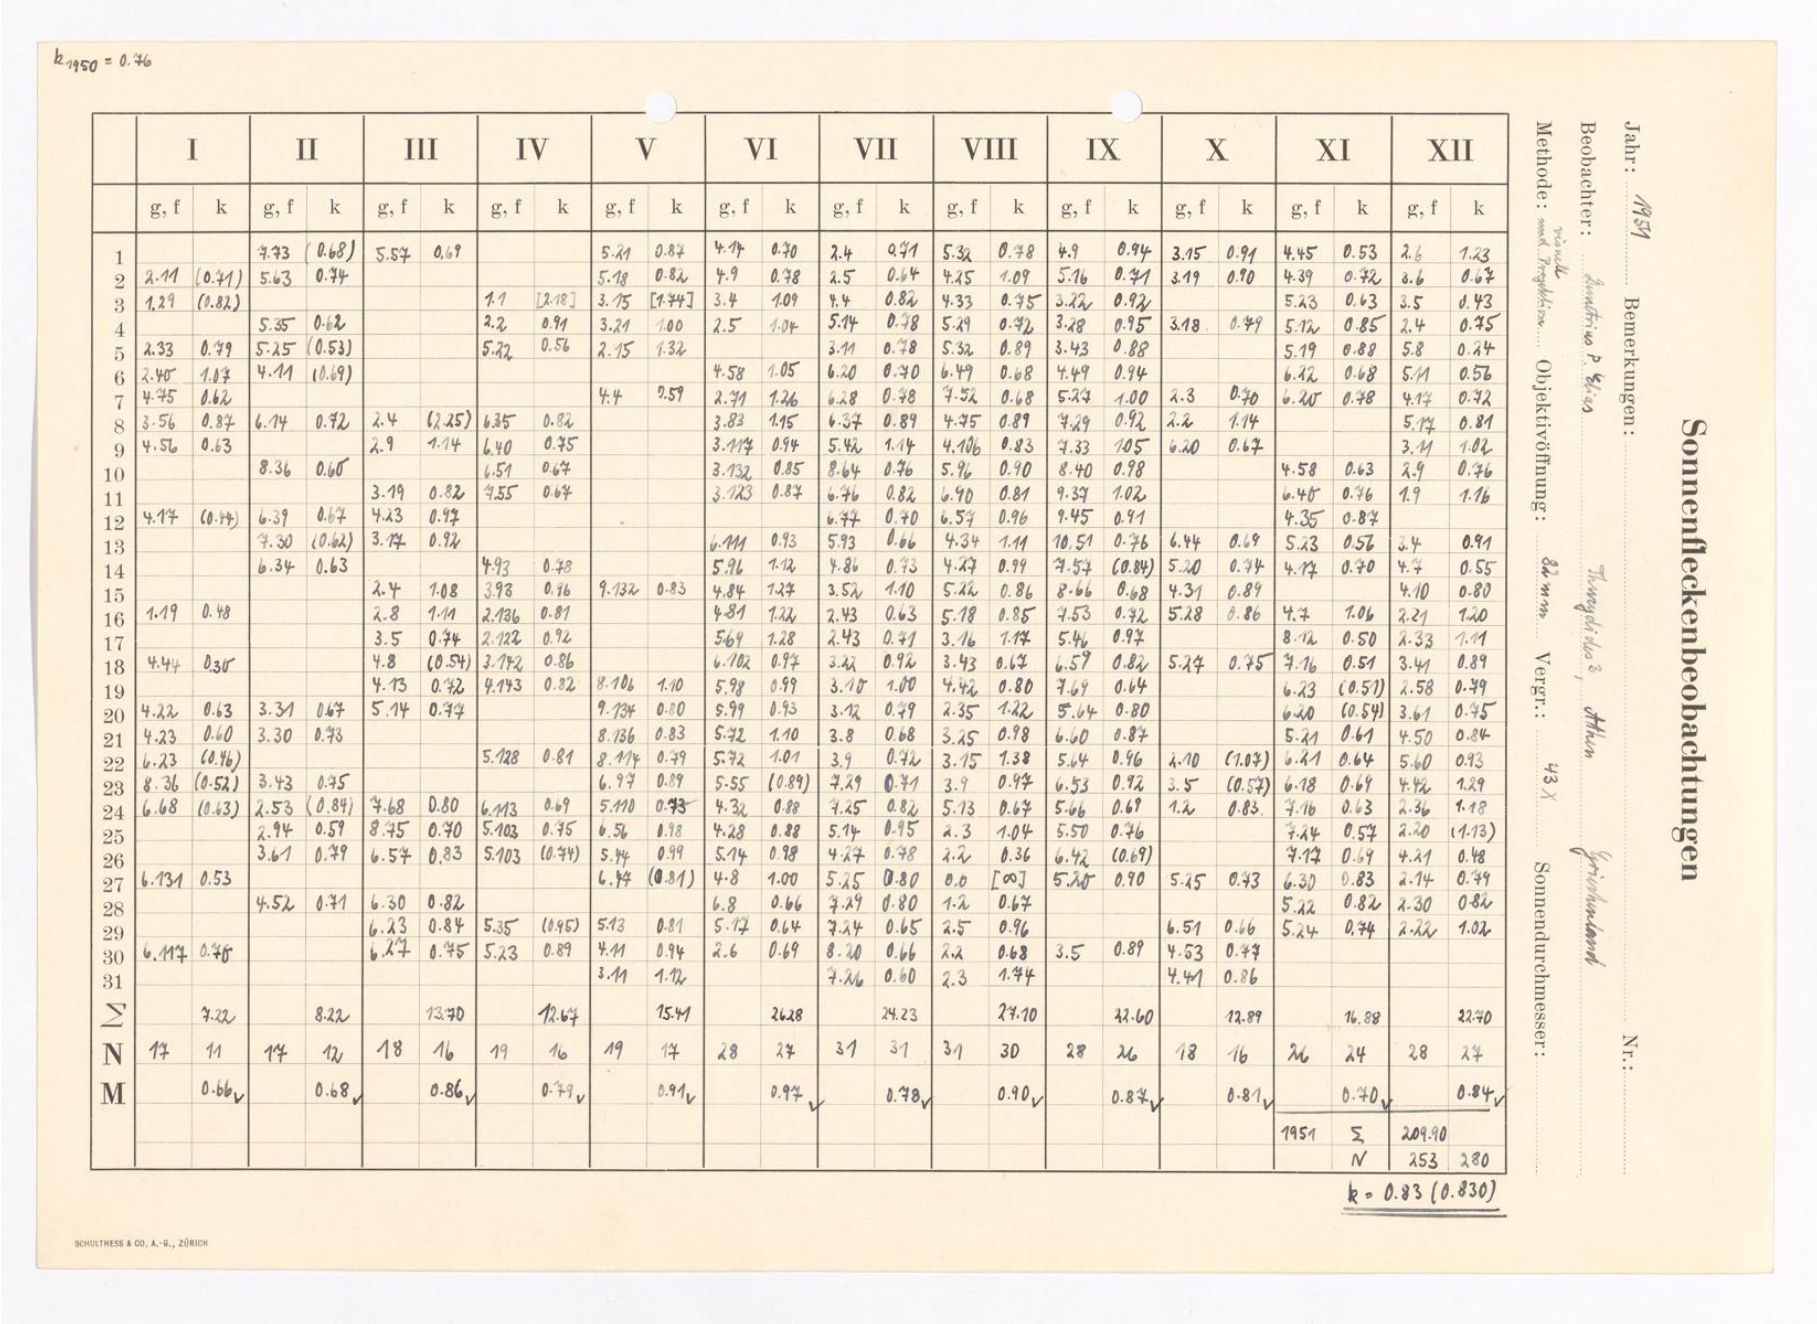 k 1950 = 0.76
I II III IV V VI VII VIII IX X XI XII
g, f k g, f k g, f k g, f k g, f k g, f k g, f k g, f k g, f k g, f k g, f k g, f k
1 7.73 (0.68) 5.57 0.69 5.21 0.87 4.14 0.70 2.4 0.71 5.32 0.78 4.9 0.94 3.15 0.91 4.45 0.53 2.6 1.23
2 2.11 (0.71) 5.63 0.74 5.18 0.82 4.9 0.78 2.5 0.64 4.25 1.09 5.16 0.71 3.19 0.70 4.39 0.72 3.6 0.67
3 1.29 (0.82) 1.1 [2.18] 3.15 [1.74] 3.4 1.09 4.4 0.82 4.33 0.75 3.22 0.92 5.23 0.63 3.5 0.43
4 5.35 0.62 2.2 0.91 3.21 1.00 2.5 1.04 5.14 0.78 5.29 0.72 3.28 0.95 3.18 0.79 5.12 0.85 2.4 0.75
5 2.33 0.79 5.25 (0.53) 5.22 0.56 2.15 1.32 3.11 0.78 5.32 0.89 3.43 0.88 5.19 0.88 5.8 0.24
6 2.40 1.07 4.11 (0.69) 4.58 1.05 6.20 0.70 6.49 0.68 4.49 0.94 6.22 0.68 5.11 0.56
7 4.75 0.62 4.4 0.59 2.71 1.26 6.28 0.78 7.52 0.68 5.27 1.00 2.3 0.70 6.20 0.78 4.17 0.72
8 3.56 0.87 6.14 0.72 2.4 (2.25) 6.35 0.82 3.83 1.15 6.37 0.89 4.75 0.89 7.29 0.92 2.2 1.14 5.17 0.81
9 4.56 0.63 2.9 1.14 6.40 0.75 3.117 0.94 5.42 1.14 4.106 0.83 7.33 105 6.20 0.67 3.11 1.02
10 8.36 0.60 6.51 0.67 3.132 0.85 8.64 0.76 5.96 0.90 8.40 0.98 4.58 0.63 2.9 0.76
11 3.19 0.82 7.55 0.67 3.123 0.87 6.76 0.82 6.90 0.81 9.37 1.02 6.40 0.76 1.9 1.16
12 4.17 (0.44) 6.39 0.67 4.23 0.97 6.77 0.70 6.57 0.96 9.45 0.91 4.35 0.87
13 7.30 (0.62) 3.17 0.92 6.111 0.93 5.93 0.66 4.34 1.11 10.51 0.76 6.44 0.69 5.23 0.56 3.4 0.91
14 6.34 0.63 4.93 0.78 5.96 1.12 4.86 0.73 4.27 0.99 7.57 (0.84) 5.20 0.74 4.17 0.70 4.7 0.55
15 2.4 1.08 3.93 0.96 9.132 0.83 4.84 1.27 3.52 1.10 5.22 0.86 8.66 0.68 4.31 0.89 4.10 0.80
16 1.19 0.48 2.8 1.11 2.136 0.81 4.81 1.22 2.43 0.63 5.18 0.85 7.53 0.72 5.28 0.86 4.7 1.06 2.21 1.20
17 3.5 0.74 2.122 0.92 5.69 1.28 2.43 0.71 3.16 1.17 5.46 0.97 8.12 0.50 2.33 1.11
18 4.44 0.30 4.8 (0.54) 3.142 0.86 6.102 0.97 3.22 0.92 3.43 0.67 6.59 0.82 5.27 0.75 7.16 0.51 3.41 0.89
19 4.13 0.72 4.143 0.82 8.106 1.10 5.98 0.99 3.10 1.00 4.42 0.80 7.69 0.64 6.23 (0.51) 2.58 0.79
20 4.22 0.63 3.31 0.67 5.14 0.77 9.134 0.80 5.99 0.93 3.12 0.79 2.35 1.22 5.64 0.80 6.20 (0.54) 3.61 0.75
21 4.23 0.60 3.30 0.73 8.136 0.83 5.72 1.10 3.8 0.68 3.25 0.98 6.60 0.87 5.21 0.61 4.50 0.84
22 6.23 (0.46) 5.128 0.81 8.114 0.79 5.72 1.01 3.9 0.72 3.15 1.38 5.64 0.96 2.10 (1.07) 6.21 0.64 5.60 0.93
23 8.36 (0.52) 3.43 0.75 6.97 0.89 5.55 (0.89) 7.29 0.71 3.9 0.97 6.53 0.92 3.5 (0.57) 6.18 0.69 4.42 1.29
24 6.68 (0.63) 2.53 (0.84) 7.68 0.80 6.113 0.69 5.110 0.73 4.32 0.88 7.25 0.82 5.13 0.67 5.66 0.69 1.2 0.83 7.16 0.63 2.36 1.18
25 2.94 0.59 8.75 0.70 5.103 0.75 6.56 0.98 4.28 0.88 5.14 0.95 2.3 1.04 5.50 0.76 7.24 0.57 2.20 (1.13)
26 3.61 0.79 6.57 0.83 5.103 (0.74) 5.44 0.99 5.14 0.98 4.27 0.78 2.2 0.36 6.42 (0.69) 7.17 0.69 4.21 0.48
27 6.131 0.53 6.47 (0.81) 4.8 1.00 5.25 0.80 0.0 [∞] 5.20 0.90 5.25 0.73 6.30 0.83 2.14 0.79
28 4.52 0.71 6.30 0.82 6.8 0.66 7.29 0.80 1.2 0.67 5.22 0.82 2.30 0.82
29 6.23 0.84 5.35 (0.95) 5.13 0.81 5.17 0.64 7.24 0.65 2.5 0.96 6.51 0.66 5.24 0.74 2.22 1.02
30 6.117 0.70 6.27 0.75 5.23 0.89 4.11 0.94 2.6 0.69 8.20 0.66 2.2 0.68 3.5 0.89 4.53 0.77
31 3.11 1.12 7.26 0.60 2.3 1.74 4.41 0.86
Σ 7.22 8.22 13.70 12.67 15.41 26.28 24.23 27.10 22.60 12.89 16.88 22.70
N 17 11 17 12 18 16 19 16 19 17 28 27 31 31 31 30 28 26 18 16 26 24 28 27
M 0.66✓ 0.68✓ 0.86✓ 0.79✓ 0.91✓ 0.97✓ 0.78✓ 0.90✓ 0.87✓ 0.81✓ 0.70✓ 0.84✓
1951 Σ 209.90
N 253 280
k = 0.83 (0.830)
SCHULTHESS & CO. A.-G., ZÜRICH
Sonnenfleckenbeobachtungen
Jahr: 1951 Bemerkungen: Nr.:
Beobachter: P. Elias Thucydides 3, Athen Griechenland
Methode: visuell und Projektion Objektivöffnung: 82mm Vergr.: 43 X Sonnendurchmesser: